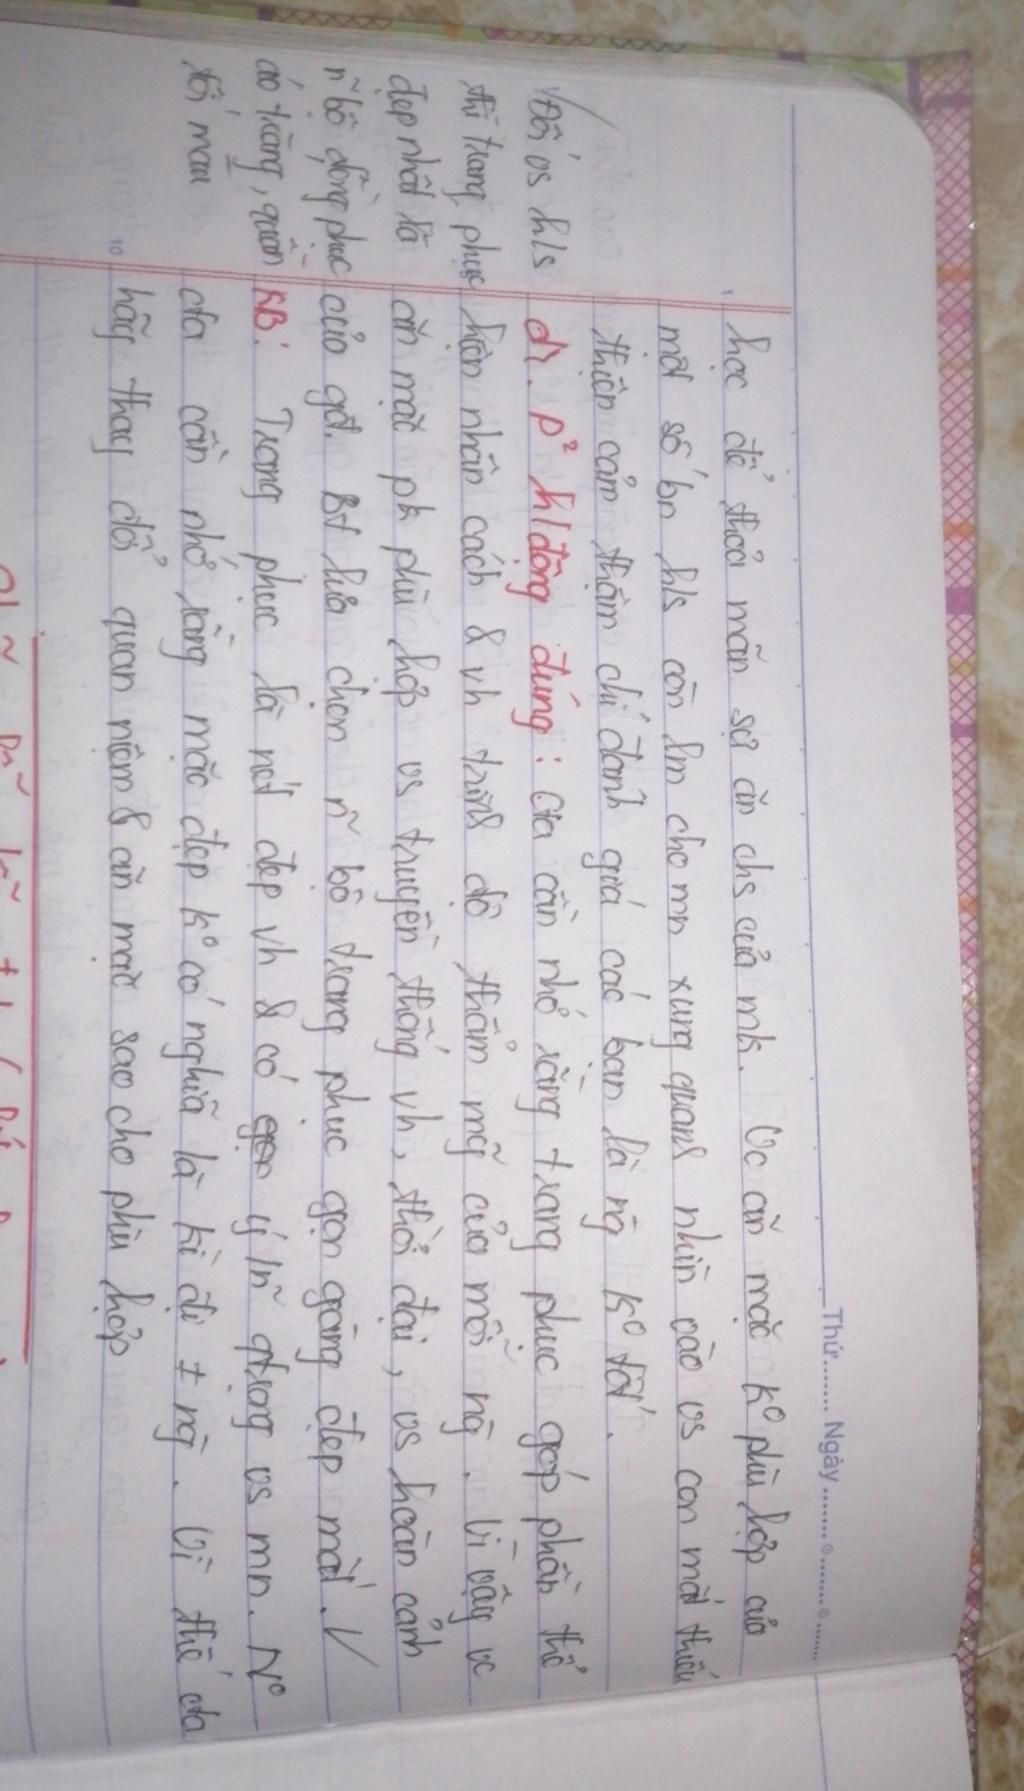 Thứ........ Ngày ........⊙........⊙......
1
học để thoả mãn sự ăn chs của mk. Vc ăn mặc k° phù hợp của
một số bn h/s còn lm cho mn xung quanh nhìn vào vs con mắt thiếu
thiện cảm thậm chí đánh giá các bạn là ng k° tốt.
d). P² h/động đúng: Cta cần nhớ rằng trang phục góp phần thể
hiện nhân cách & vh trình độ thẩm mỹ của mỗi ng. Vì vậy vc
ăn mặc pk phù hợp vs truyền thống vh, thời đại, vs hoàn cảnh
của gđ. Bt lựa chọn n~ bộ trang phục gọn gàng đẹp mắt. V
KB: Trang phục là nét đẹp vh & có ý n~ qtrọng vs mn. N°
cta cần nhớ rằng mặc đẹp k° có nghĩa là kì dị + ng. Vì thế cta
hãy thay đổi quan niệm & ăn mặc sao cho phù hợp
10
V Đối vs h/s
thì trang phục
đẹp nhất là
n~ bộ đồng phục
áo trắng, quần
tối màu